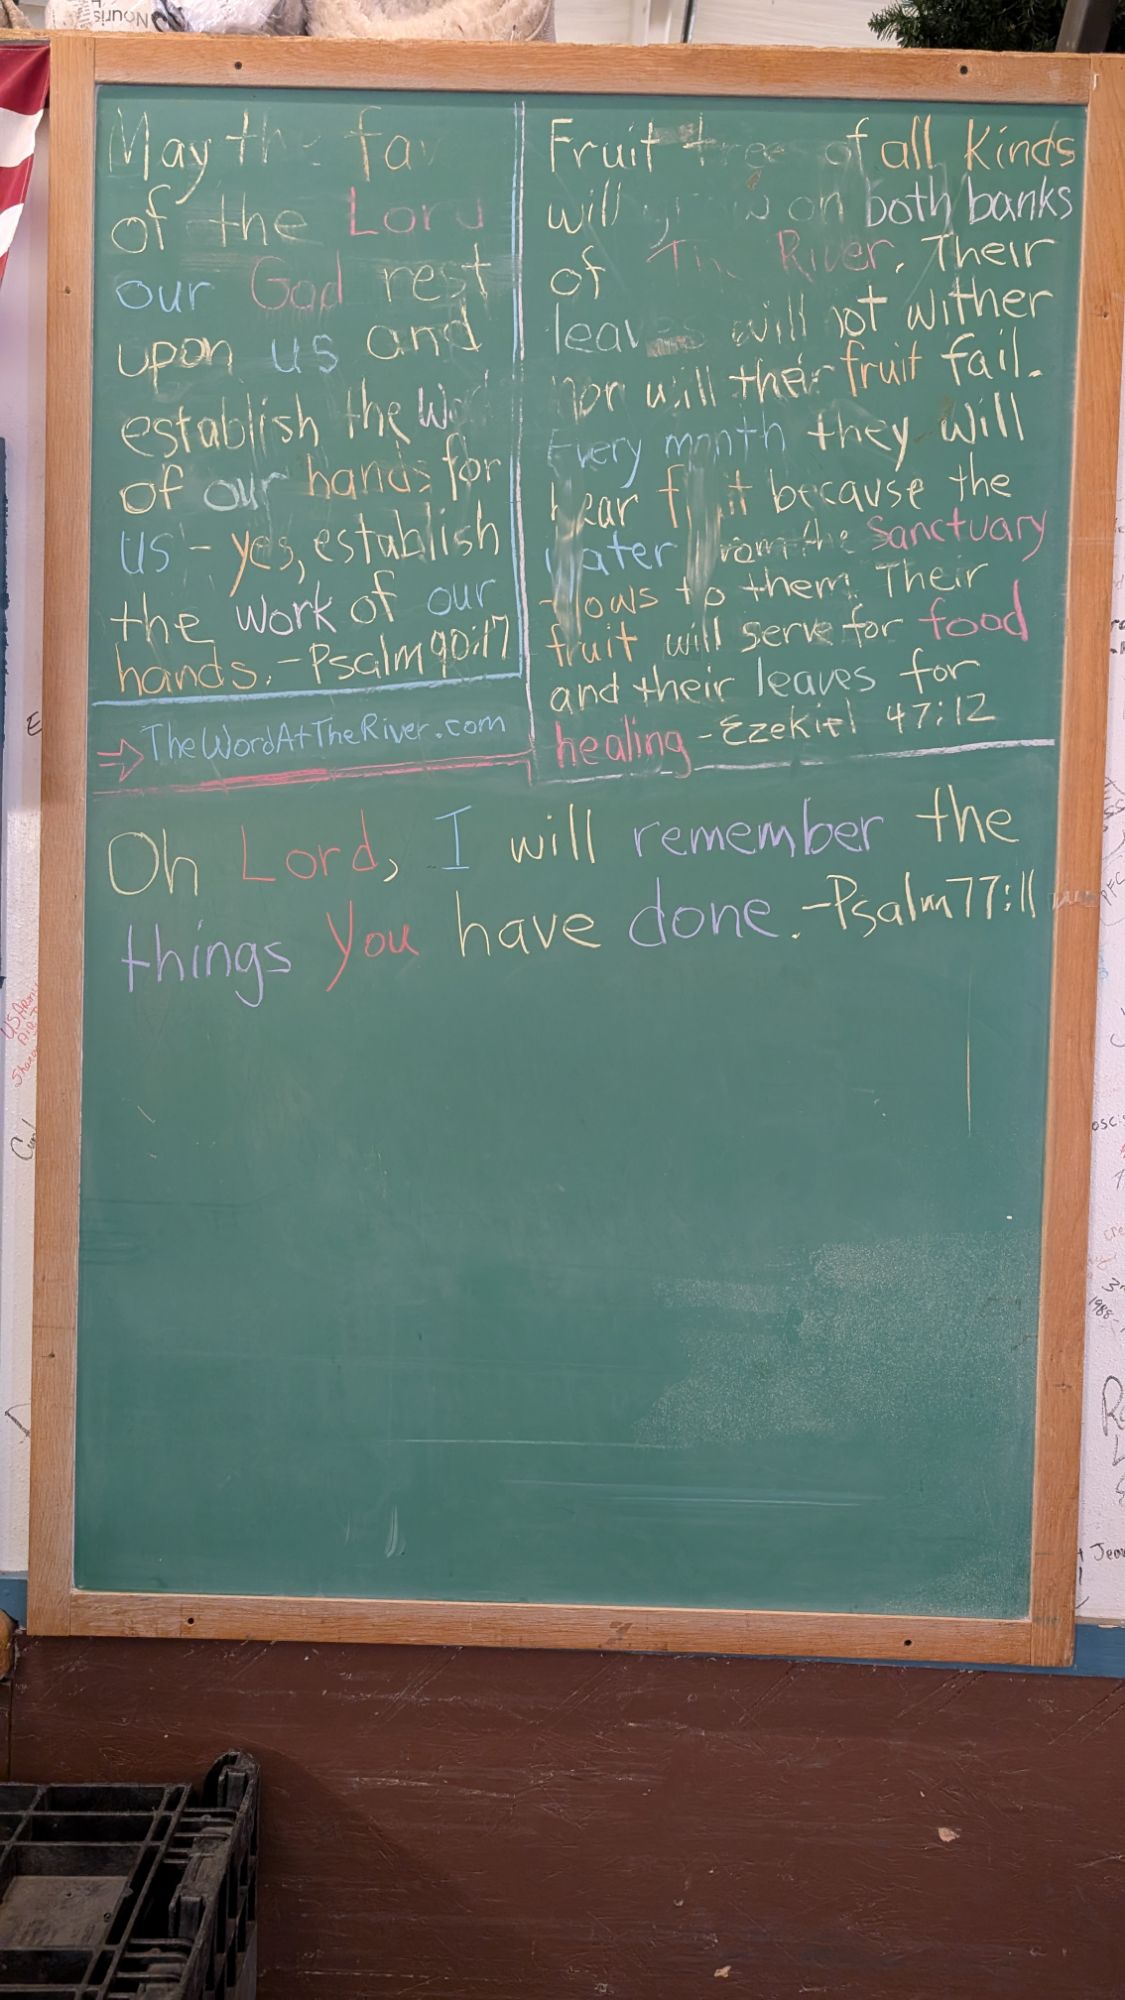 May the fav
of the Lord
our God rest
upon us and
establish the
of our hands for
us - yes, establish
the work of our
hands. - Psalm 90:17
TheWordAtTheRiver.com
Fruit trees of all Kinds
will on both banks
of The River. Their
leaves will not wither
nor will their fruit fail.
Every month they will
bear fruit because the
water from the Sanctuary
flows to them. Their
fruit will serve for food
and their leaves for
healing - Ezekiel 47:12
Oh Lord, I will remember the
things You have done. - Psalm 77:11